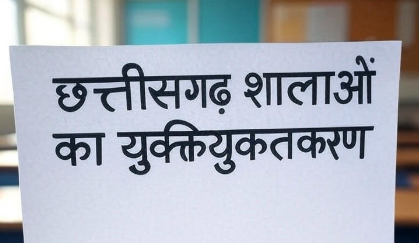 छत्तीसगढ़ शालाओं
का युक्तियुकतकरण